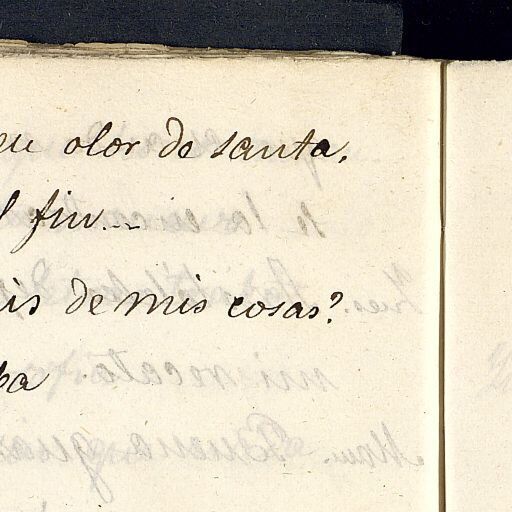 en olor de santa.
fin...
is de mis cosas?
ba